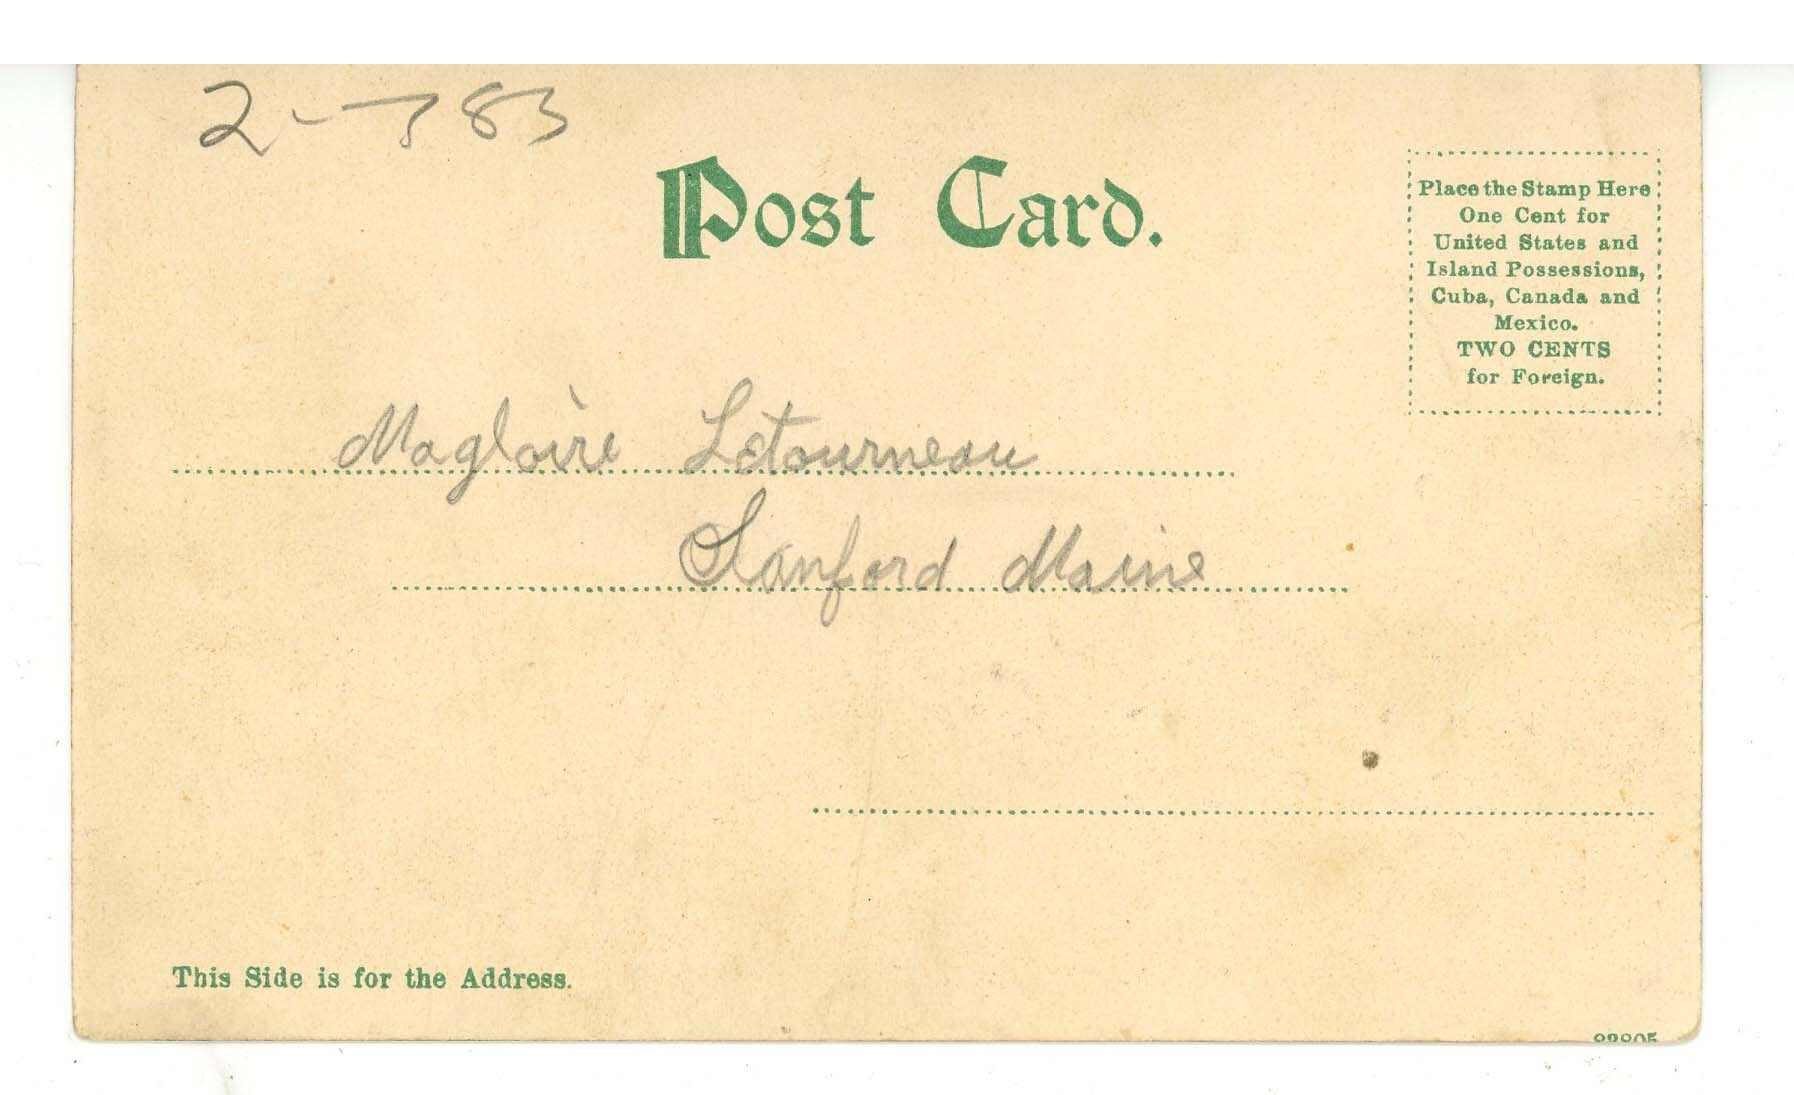 2-783
Post Card.
Place the Stamp Here
One Cent for
United States and
Island Possessions,
Cuba, Canada and
Mexico.
TWO CENTS
for Foreign.
Magloire Letourneau
Sanford Maine
This Side is for the Address.